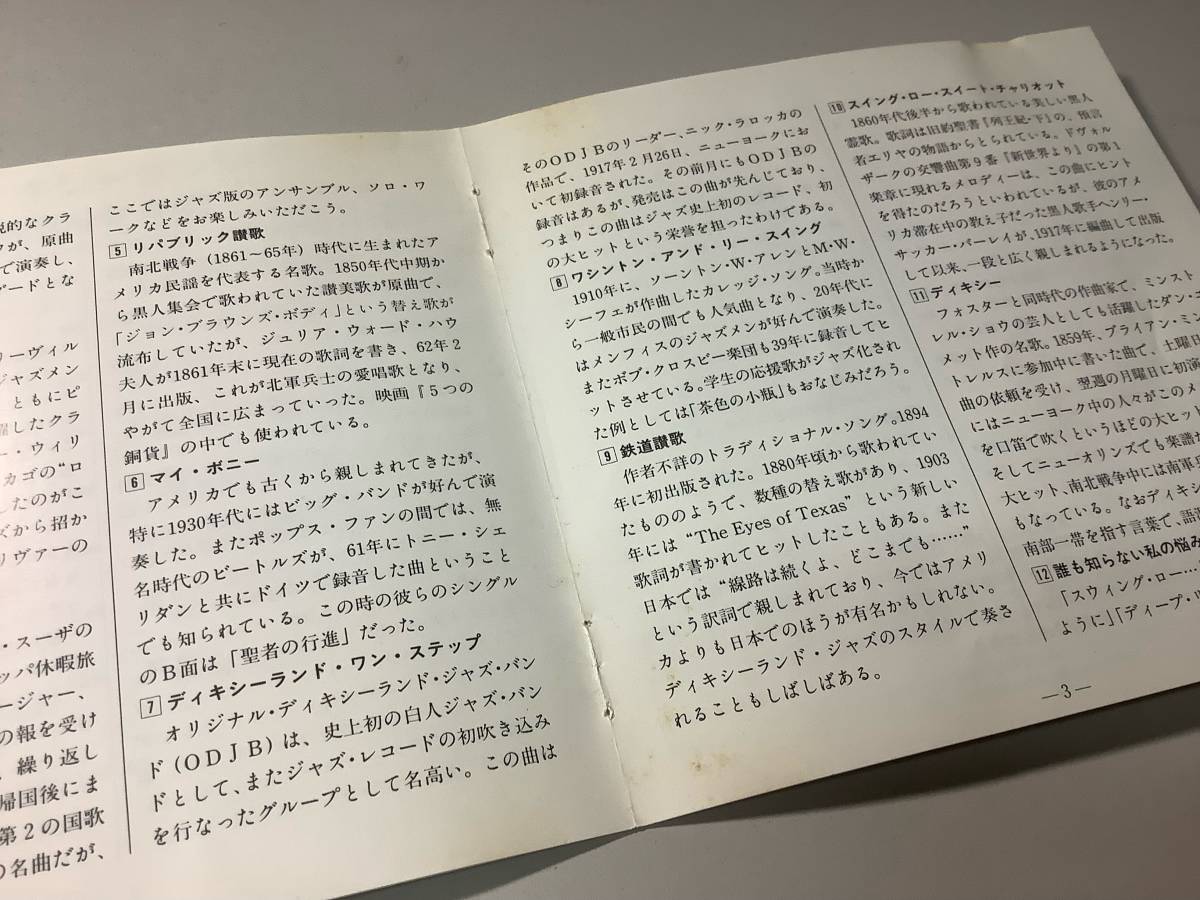 説的なクラ
クが、原曲
で演奏し、
ゲードとな
リーヴィル
ジャズメン
ともにピ
躍したクラ
ー・ウィリ
カゴの“ロ
したのがこ
ズから招か
リヴァーの
・スーザの
ッパ休暇旅
ージャー、
の報を受け
、繰り返し
帰国後にま
第2の国歌
の名曲だが、
ここではジャズ版のアンサンブル、ソロ・ワ
ークなどをお楽しみいただこう。
5 リパブリック讃歌
南北戦争（1861〜65年）時代に生まれたア
メリカ民謡を代表する名歌。1850年代中期か
ら黒人集会で歌われていた讃美歌が原曲で、
「ジョン・ブラウンズ・ボディ」という替え歌が
流布していたが、ジュリア・ウォード・ハウ
夫人が1861年末に現在の歌詞を書き、62年2
月に出版、これが北軍兵士の愛唱歌となり、
やがて全国に広まっていった。映画『5つの
銅貨』の中でも使われている。
6 マイ・ボニー
アメリカでも古くから親しまれてきたが、
特に1930年代にはビッグ・バンドが好んで演
奏した。またポップス・ファンの間では、無
名時代のビートルズが、61年にトニー・シェ
リダンと共にドイツで録音した曲ということ
でも知られている。この時の彼らのシングル
のB面は「聖者の行進」だった。
7 ディキシーランド・ワン・ステップ
オリジナル・ディキシーランド・ジャズ・バン
ド（ODJB）は、史上初の白人ジャズ・バン
ドとして、またジャズ・レコードの初吹き込み
を行なったグループとして名高い。この曲は
そのODJBのリーダー、ニック・ラロッカの
作品で、1917年2月26日、ニューヨークにお
いて初録音された。その前月にもODJBの
録音はあるが、発売はこの曲が先んじており、
つまりこの曲はジャズ史上初のレコード、初
の大ヒットという栄誉を担ったわけである。
8 ワシントン・アンド・リー・スイング
1910年に、ソーントン・W・アレンとM・W・
シーフェが作曲したカレッジ・ソング。当時か
ら一般市民の間でも人気曲となり、20年代に
はメンフィスのジャズメンが好んで演奏した。
またボブ・クロスビー楽団も39年に録音してヒ
ットさせている。学生の応援歌がジャズ化され
た例としては「茶色の小瓶」もおなじみだろう。
9 鉄道讃歌
作者不詳のトラディショナル・ソング。1894
年に初出版された。1880年頃から歌われてい
たもののようで、数種の替え歌があり、1903
年には“The Eyes of Texas”という新しい
歌詞が書かれてヒットしたこともある。また
日本では“線路は続くよ、どこまでも……”
という訳詞で親しまれており、今ではアメリ
カよりも日本でのほうが有名かもしれない。
ディキシーランド・ジャズのスタイルで奏さ
れることもしばしばある。
10 スイング・ロー・スイート・チャリオット
1860年代後半から歌われている美しい黒人
霊歌。歌詞は旧約聖書『列王紀・下』の、預言
者エリヤの物語からとられている。ドヴォル
ザークの交響曲第9番『新世界より』の第1
楽章に現れるメロディーは、この曲にヒント
を得たのだろうといわれているが、彼のアメ
リカ滞在中の教え子だった黒人歌手ヘンリー・
サッカー・バーレイが、1917年に編曲して出版
して以来、一段と広く親しまれるようになった。
11 ディキシー
フォスターと同時代の作曲家で、ミンスト
レル・ショウの芸人としても活躍したダン・エ
メット作の名歌。1859年、ブライアン・ミン
トレルスに参加中に書いた曲で、土曜日
曲の依頼を受け、翌週の月曜日に初演
にはニューヨーク中の人々がこのメ
を口笛で吹くというほどの大ヒット
そしてニューオリンズでも楽譜が
大ヒット、南北戦争中には南軍兵
もなっている。なおディキシ
南部一帯を指す言葉で、語源
12 誰も知らない私の悩み
「スウィング・ロー…
ように」「ディープ・リ
—3—